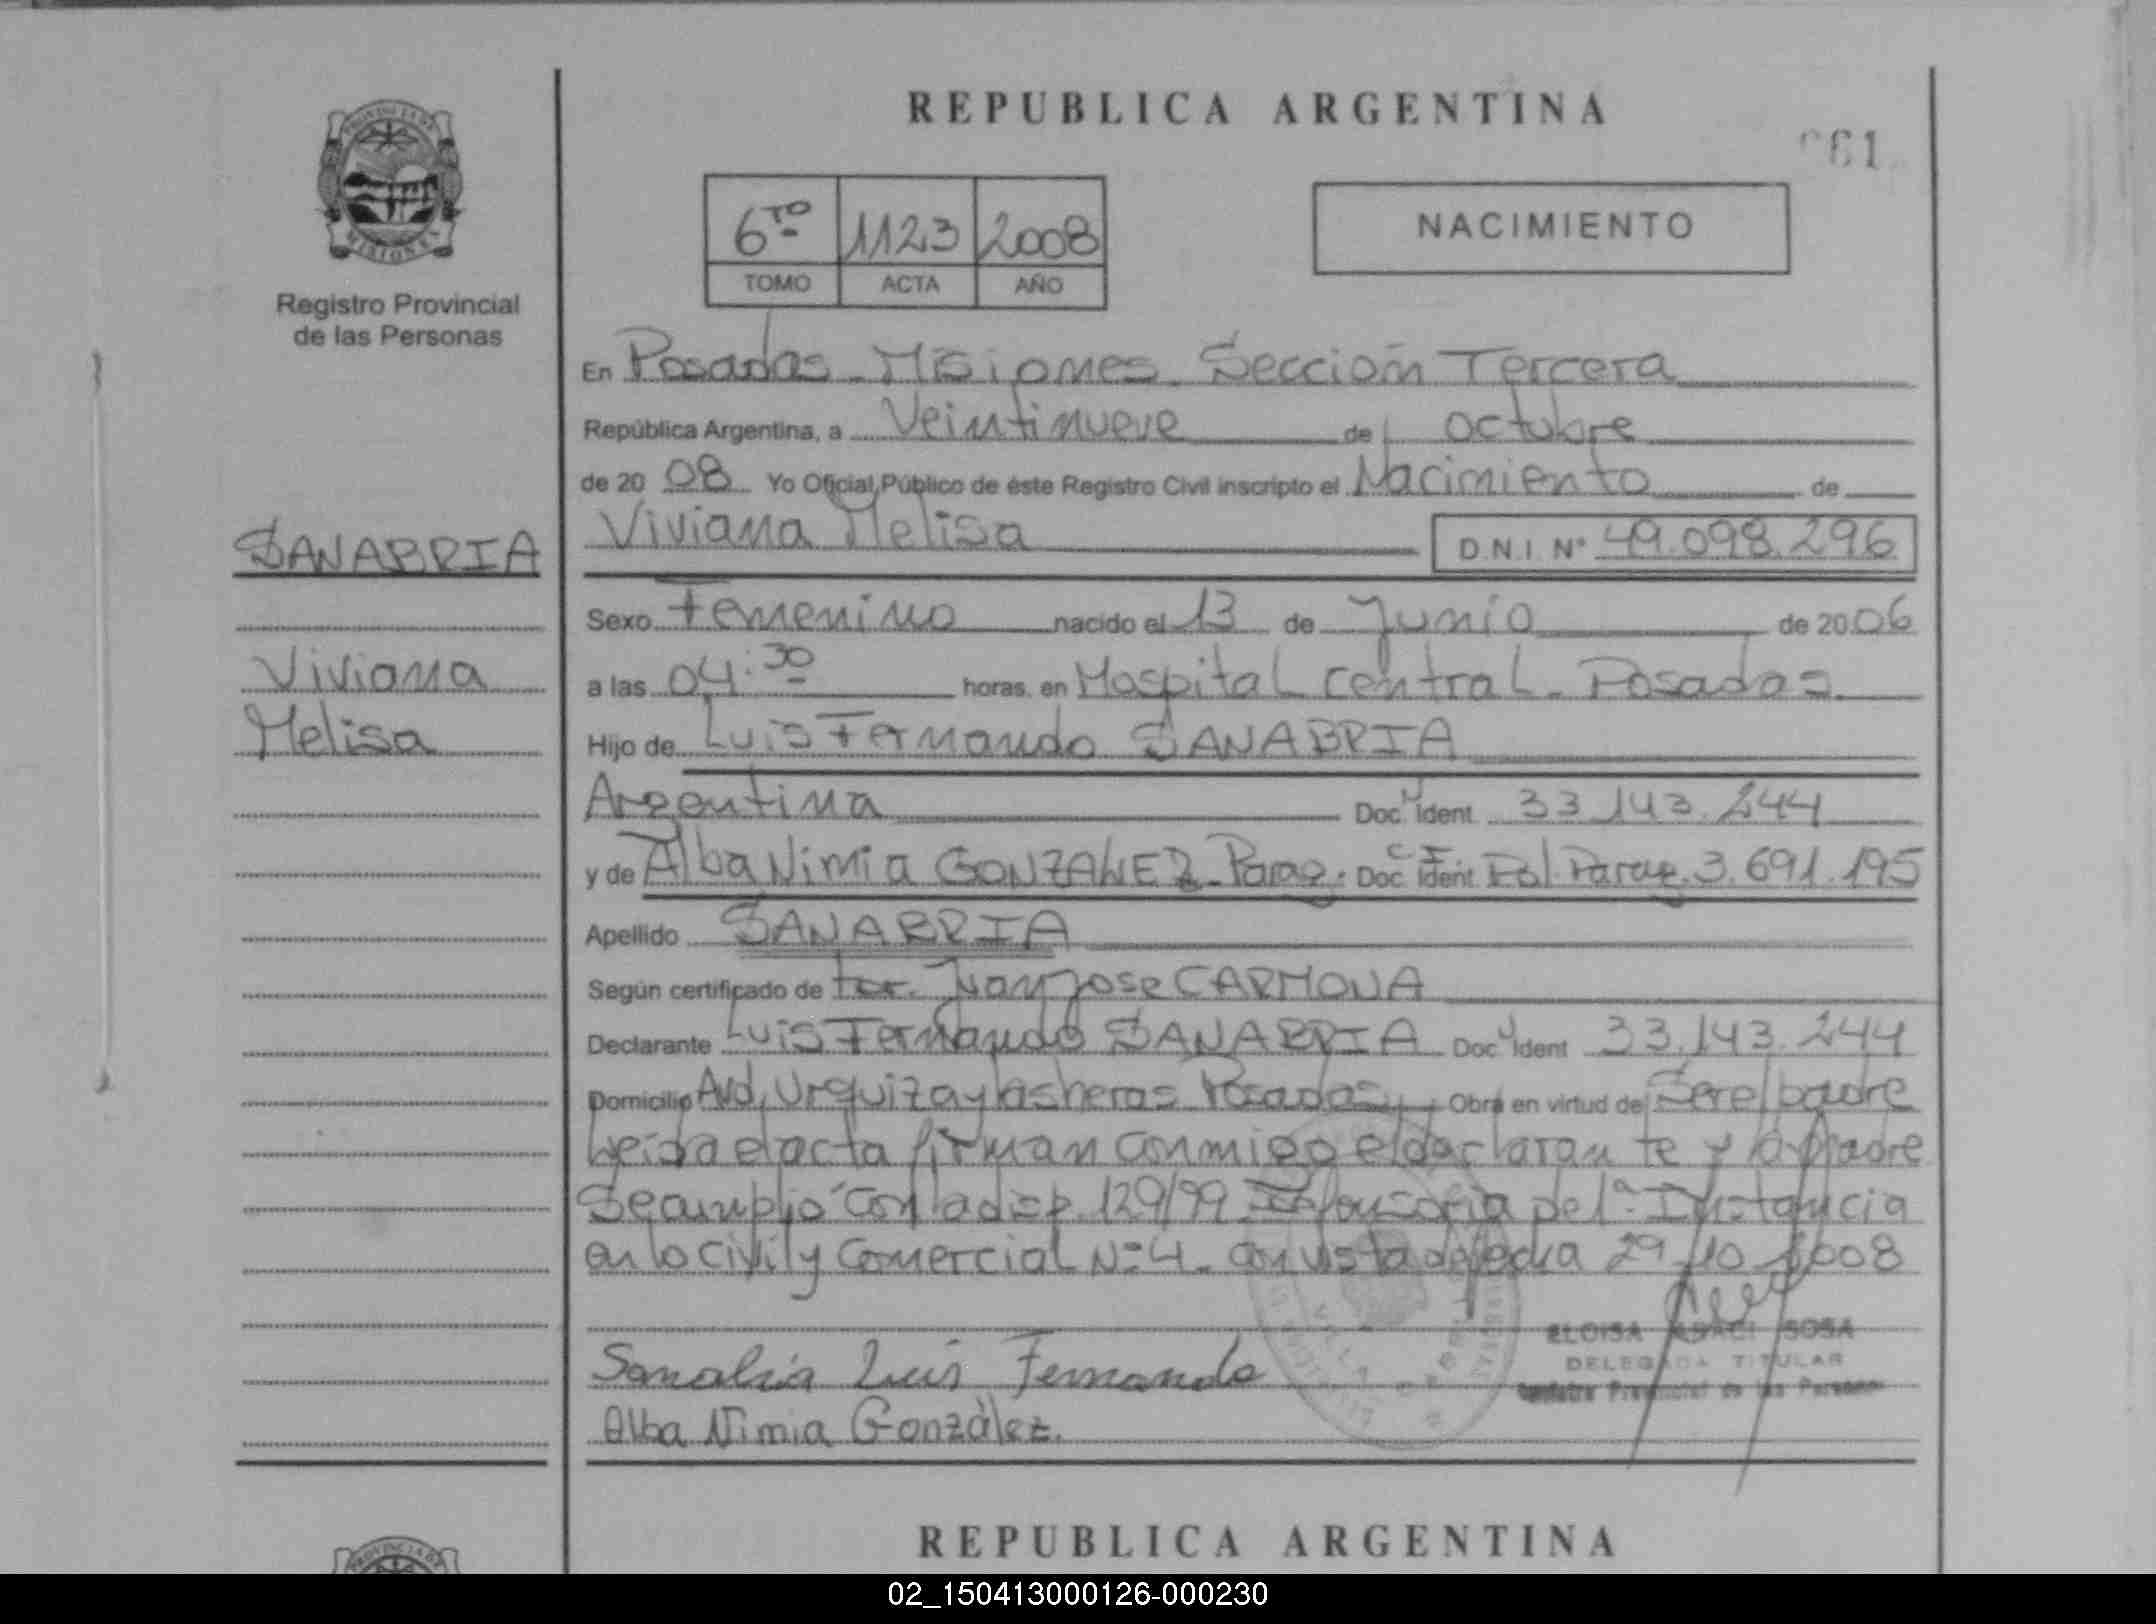 REPUBLICA ARGENTINA
061
PROVINCIA DE
MISIONES
Registro Provincial
de las Personas
6TO 1123 2008
TOMO ACTA AÑO
NACIMIENTO
En Posadas Misiones Sección Tercera
República Argentina, a Veintinueve de octubre
de 20 08 Yo Oficial Público de éste Registro Civil inscripto el Nacimiento de
Viviana Melisa D.N.I. N° 49.098.296
SANABRIA
Viviana
Melisa
Sexo Femenino nacido el 13 de Junio de 20 06
a las 04:30 horas. en Hospital Central - Posadas
Hijo de Luis Fernando SANABRIA
Argentina Doc. Ident. U 33.143.244
y de Alba Nimia GONZALEZ - Parag. Doc. Ident. C I Pol. Parag. 3.691.195
Apellido SANABRIA
Según certificado de Juan Jose CARMONA
Declarante Luis Fernando SANABRIA Doc. U Ident 33.143.244
Domicilio Avd. Urquiza y las heras Posadas Obra en virtud de Ser el padre
Leida el acta firman conmigo el declarante y la Madre
Se cumplio con la disp. 129/99 Defensoria de 1ª Instancia
en lo Civil y Comercial N=4 - con vista de fecha 29/10/2008
Sanabria Luis Fernando
Alba Nimia González.
ELOISA SOSA
DELEGADA TITULAR
Registro Provincial de las Personas
REPUBLICA ARGENTINA
PROVINCIA DE
02_150413000126-000230